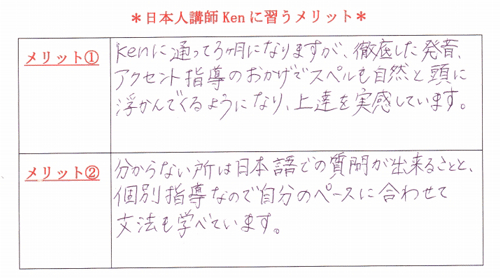 ＊日本人講師 Ken に習うメリット＊
メリット①
Kenに通って3ヶ月になりますが、徹底した発音、
アクセント指導のおかげでスペルも自然と頭に
浮かんでくるようになり、上達を実感しています。
メリット②
分からない所は日本語での質問が出来ることと、
個別指導なので自分のペースに合わせて
文法も学べています。